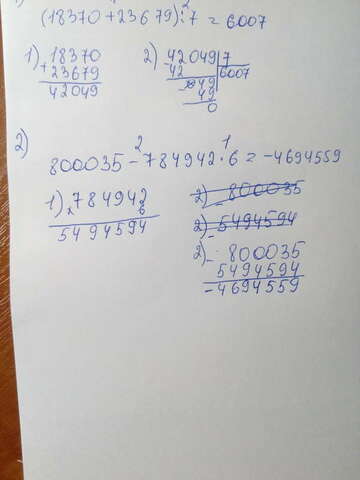 (18370+23679):7 = 6007
1) 18370
+ 23679
42049
2) 42049 7
- 42 6007
49
49
0
2)
2 1
800035-784942·6=-4694559
1) 784942
× 6
5494594
2) - 800035
2) - 5494594
2) - 800035
5494594
-4694559